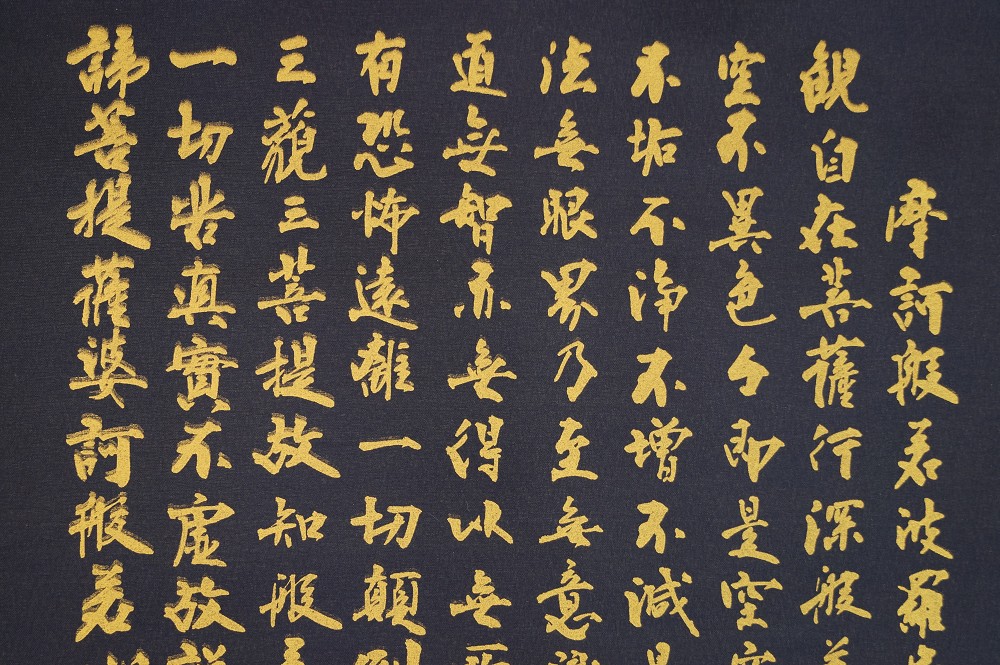 摩訶般若波羅
觀自在菩薩行深般
空不異色色即是空
不垢不淨不增不減
法無眼界乃至無意
道無智亦無得以無
有恐怖遠離一切顛
三藐三菩提故知般
一切苦真實不虛故
諦菩提薩婆訶般若